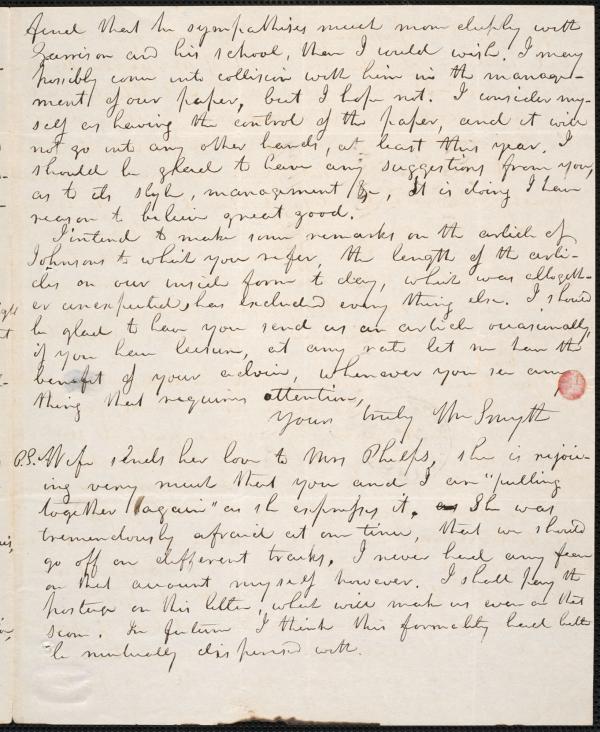 find that he sympathises much more deeply with
Garrison and his school, than I could wish. I may
possibly come into collision with him in the manage-
ment of our paper, but I hope not. I consider my-
self as having the control of the paper, and it will
not go into any other hands, at least this year. I
should be glad to have any suggestions from you,
as to its style, management &c, It is doing I have
reason to believe great good.
I intend to make some remarks on the article of
Johnsons to what you refer, the length of the arti-
cles on our inside form to day, what was altogeth-
er unexpected, has excluded every thing else. I should
be glad to have you send us an article occasionally,
if you have leisure, at any rate let me have the
benefit of your advice, whenever you see any
thing that requires attention,
Yours truly Wm Smyth
P.S. Wife sends her love to Mrs Phelps, she is rejoic-
ing very much that you and I are "pulling
together again" as she expresses it. She was
tremendously afraid at one time, that we should
go off on different tracks. I never had any fear
on that account myself however. I shall pay the
postage on this letter, what will make us even on that
score. In future I think this formality had better
be mutually dispensed with.